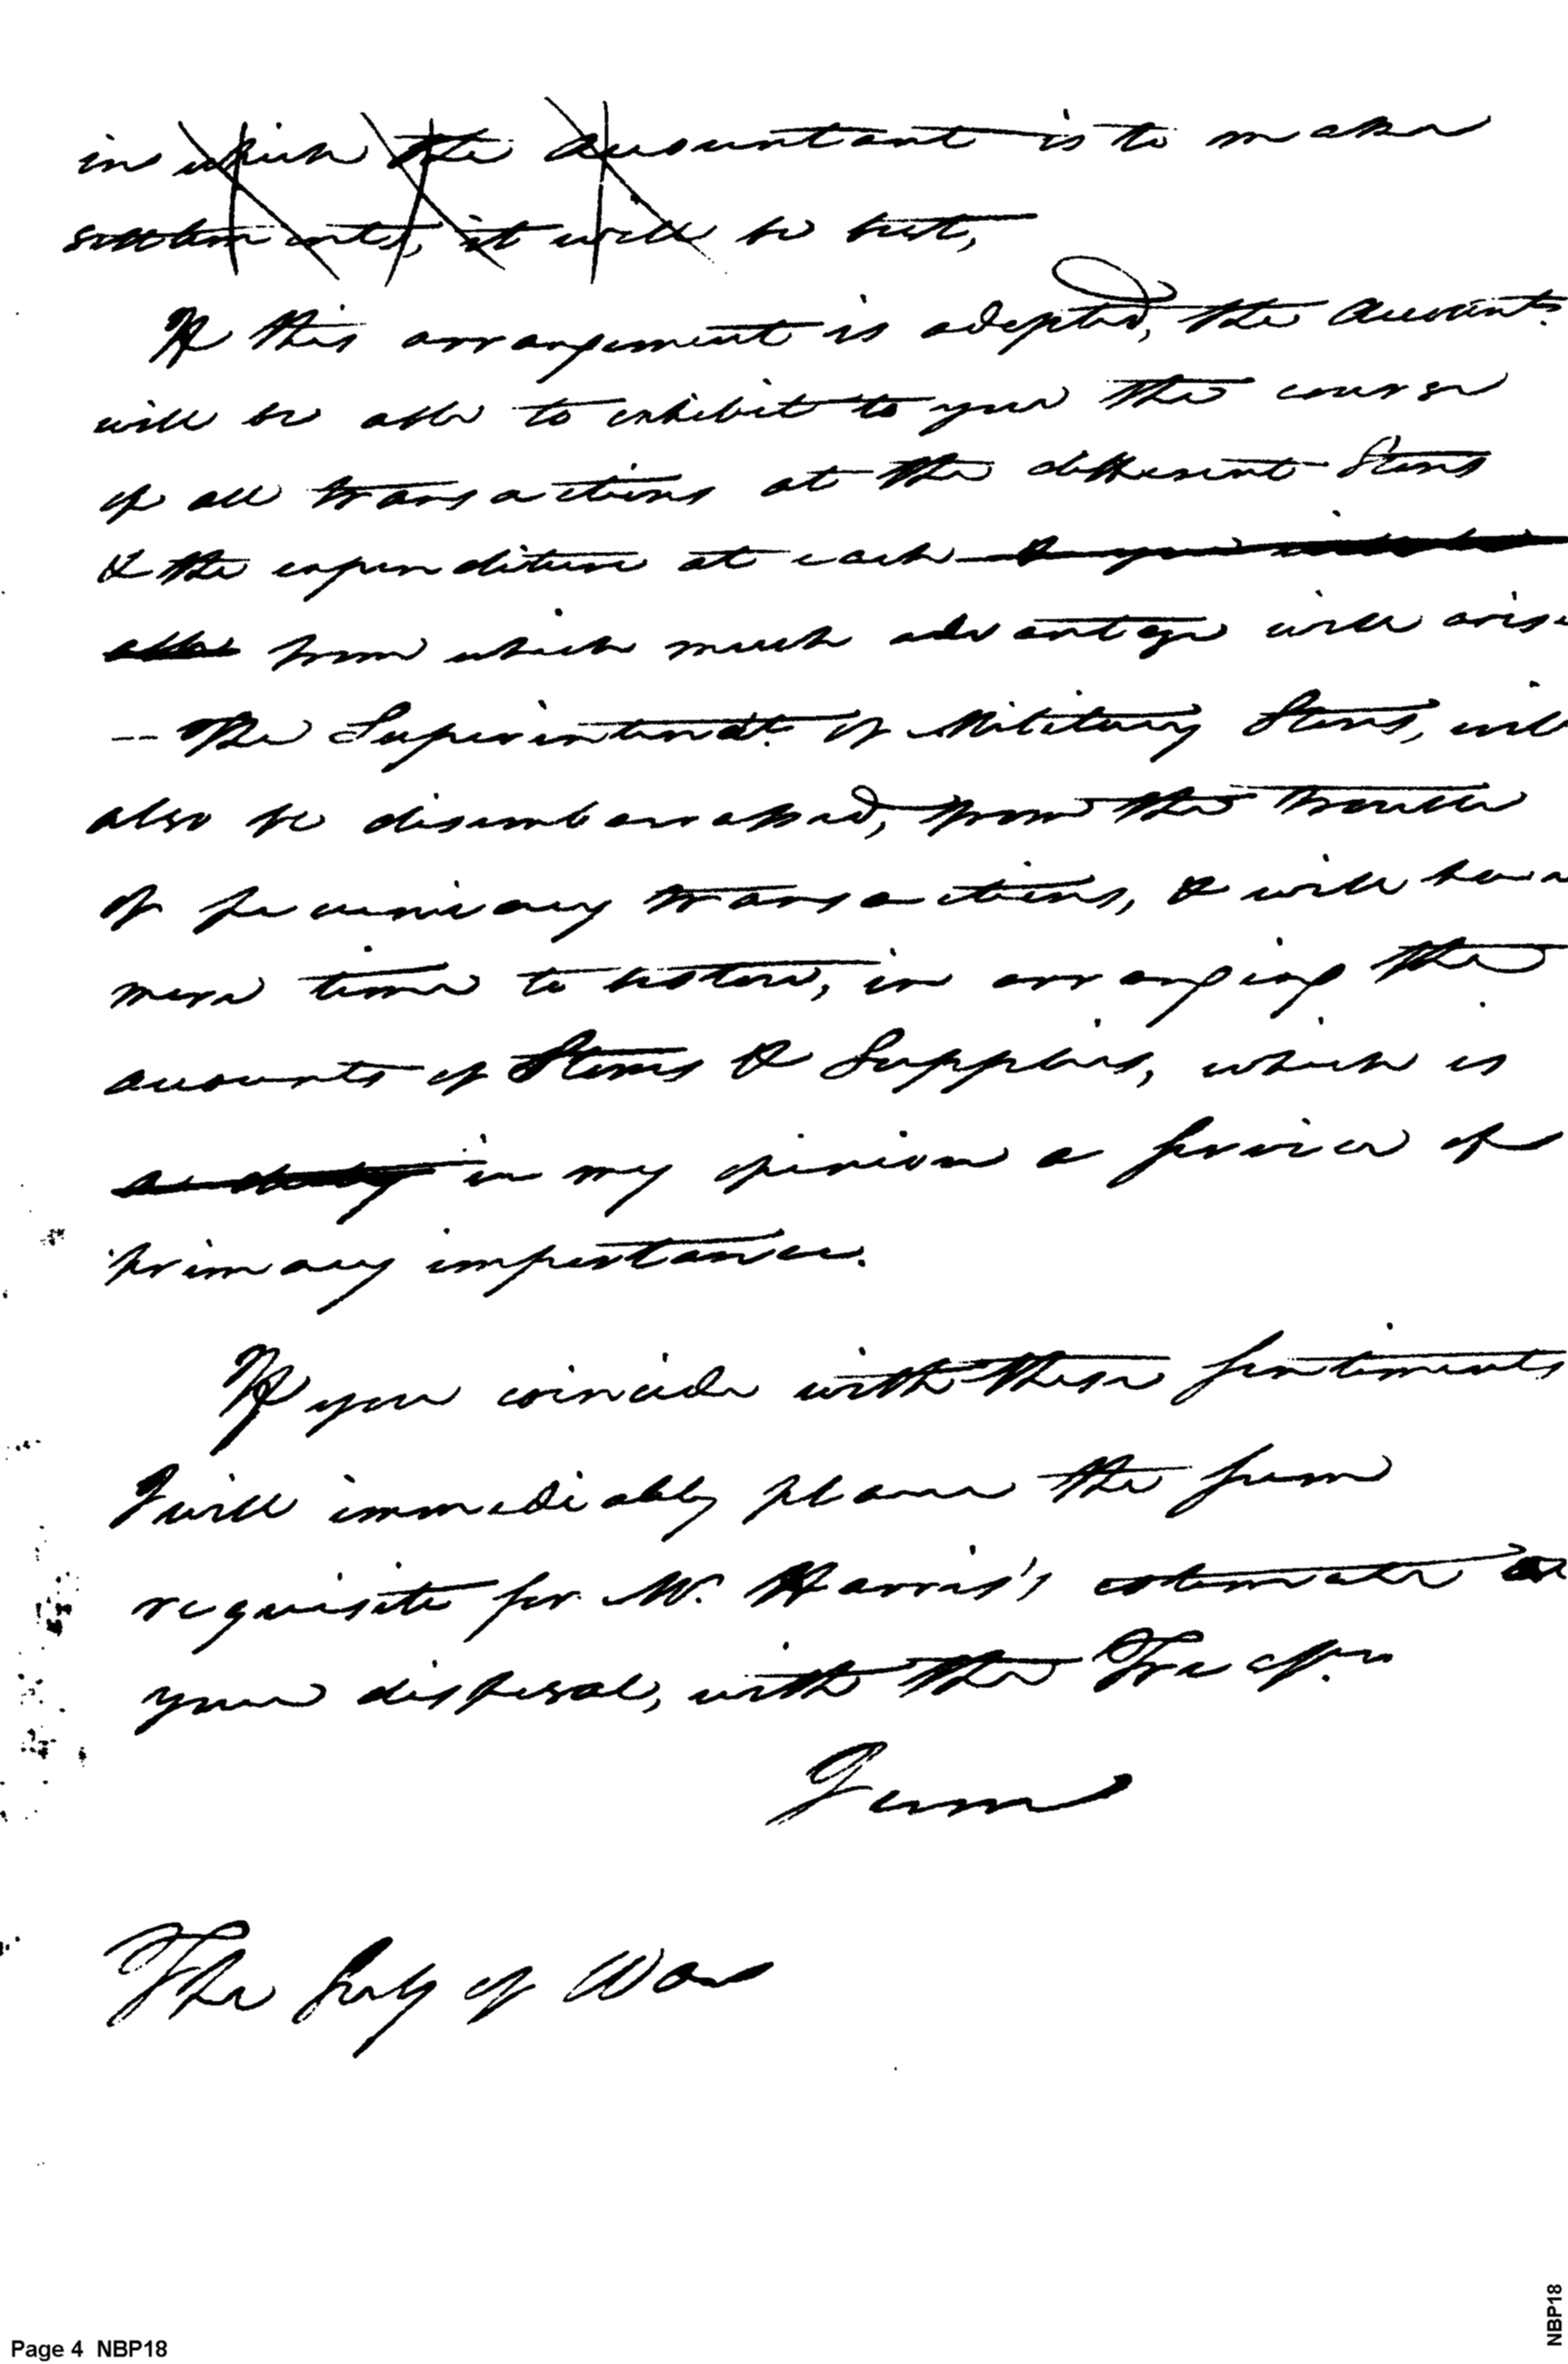 in which the Accountant is to make
settlements, it will be best,
If this arrangement is adopted, the Accountt.
will be able to exhibit to you the course
of all transactions at the different Stores
& the expenditure at each
from which much advantage will arise
-- The Superintendt. of Military Stores, will
also be disembarrassed, from the trouble
of pecuniary transactions, & will have
more time to bestow, in arranging the
accounts of Stores & Supplies, which is
in my opinion a service of
primary importance.
If you coincide with these sentiments
I will immediately place the sum
requisite for Mr. Harris's estimate at
your disposal, with the Treas.r
I am
The Secty of War
Page 4 NBP18
NBP18